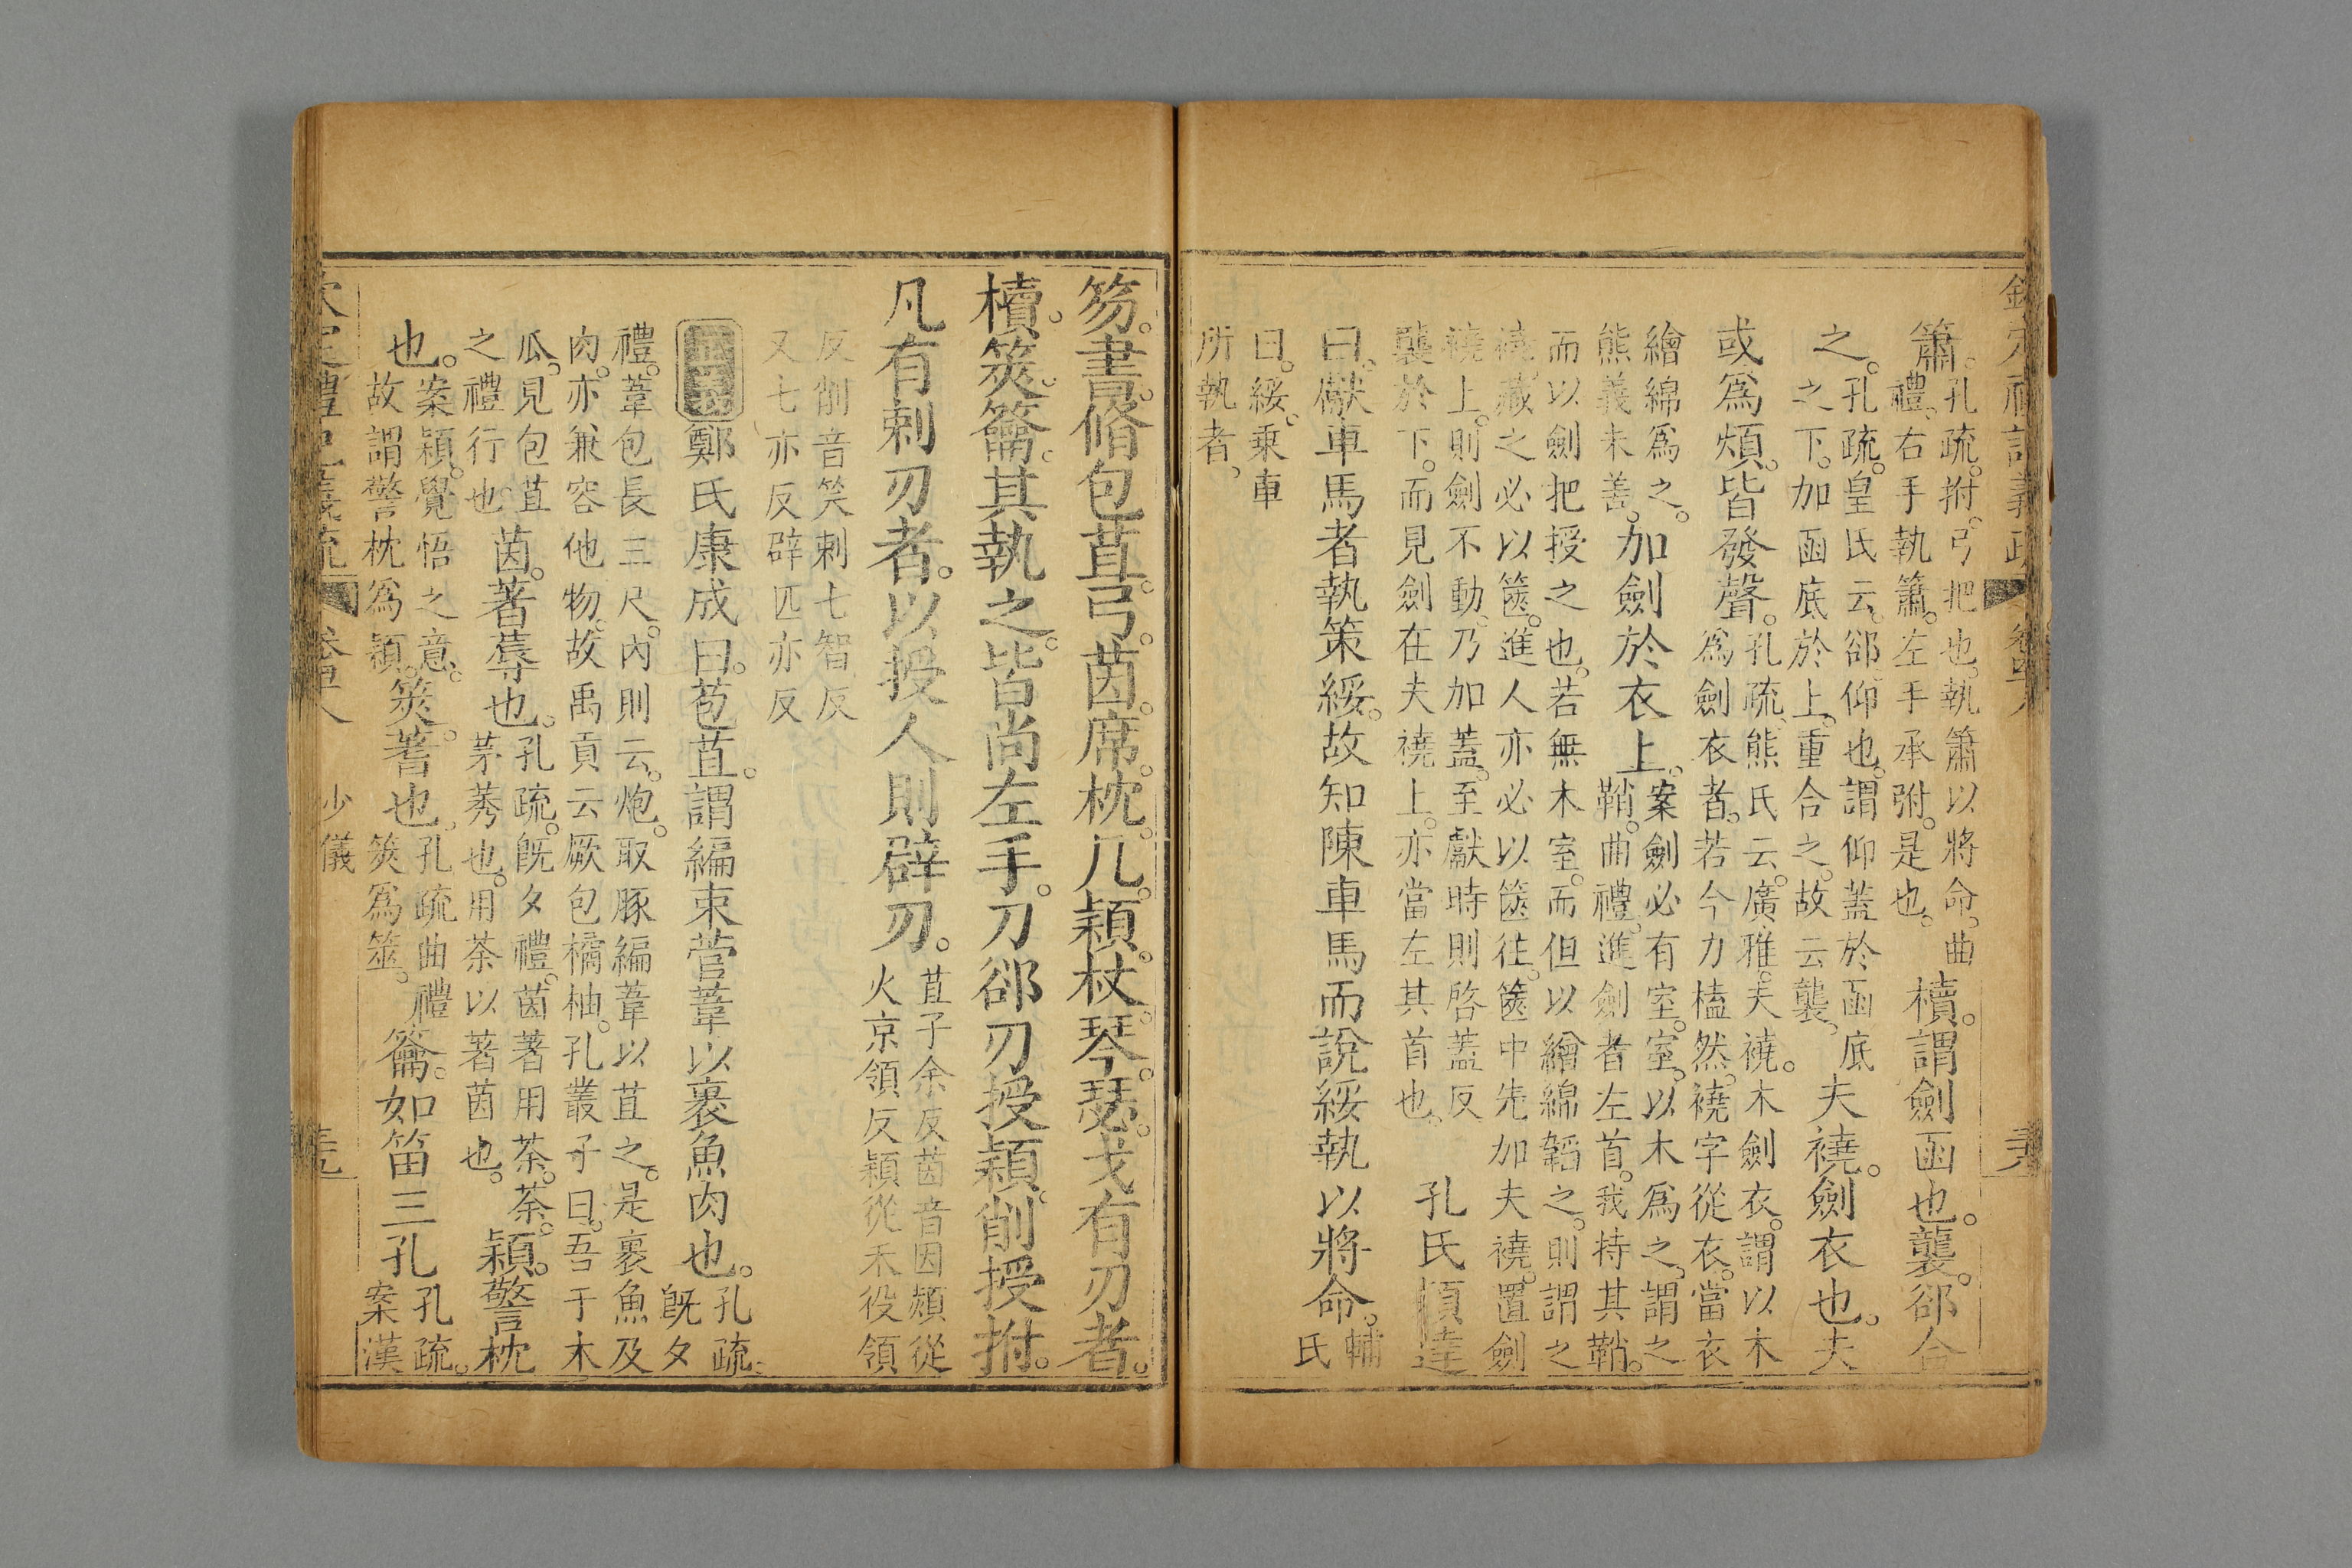 簫。孔疏。拊。弓把也。執簫以將命。曲
禮。右手執簫。左手承弣。是也。櫝。謂劍函也。襲。郤合
之。孔疏。皇氏云。郤。仰也。謂仰蓋於函底
之下。加函底於上。重合之。故云襲。夫襓。劍衣也。夫
或爲煩。皆發聲。孔疏。熊氏云。廣雅。夫襓。木劍衣。謂以木
爲劍衣者。若今力榼然。襓字從衣。當衣
繒綿爲之。
熊義未善。加劍於衣上。案劍必有室。室。以木爲之。謂之
鞘。曲禮。進劍者左首。我持其鞘。
而以劍把授之也。若無木室。而但以繒綿韜之。則謂之
襓。藏之必以篋。進人亦必以篋往。篋中先加夫襓。置劍
襓上。則劍不動。乃加蓋。至獻時則啓蓋。反
襲於下。而見劍在夫襓上。亦當左其首也。孔氏穎達
曰。獻車馬者執策綏。故知陳車馬而說綏執以將命。輔
氏
曰。綏。乗車
所執者。
笏。書。脩。包苴。弓。茵。席。枕。几。穎。杖。琴。瑟。戈有刃者。
櫝。筴。籥。其執之。皆尚左手。刀郤刃授穎。削授拊。
凡有刺刃者。以授人則辟刃。苴子余反茵音因熲從
火京領反穎從禾役領
反削音笑刺七智反
又七亦反辟匹亦反
鄭氏康成曰。苞苴。謂編束菅葦以裹魚肉也。孔疏。
旣夕
禮。葦包長三尺。內則云。炮。取豚編葦以苴之。是裹魚及
肉。亦兼容他物。故禹貢云厥包橘柚。孔叢子曰。吾于木
瓜。見包苴
之禮行也。茵。著蓐也。孔疏。旣夕禮。茵著用荼。荼。
茅莠也。用荼以著茵也。穎。警枕
也。案穎。覺悟之意。
故謂警枕爲穎。筴。蓍也。孔疏曲禮
筴爲筮。籥。如笛三孔。孔疏。
案漢
少儀